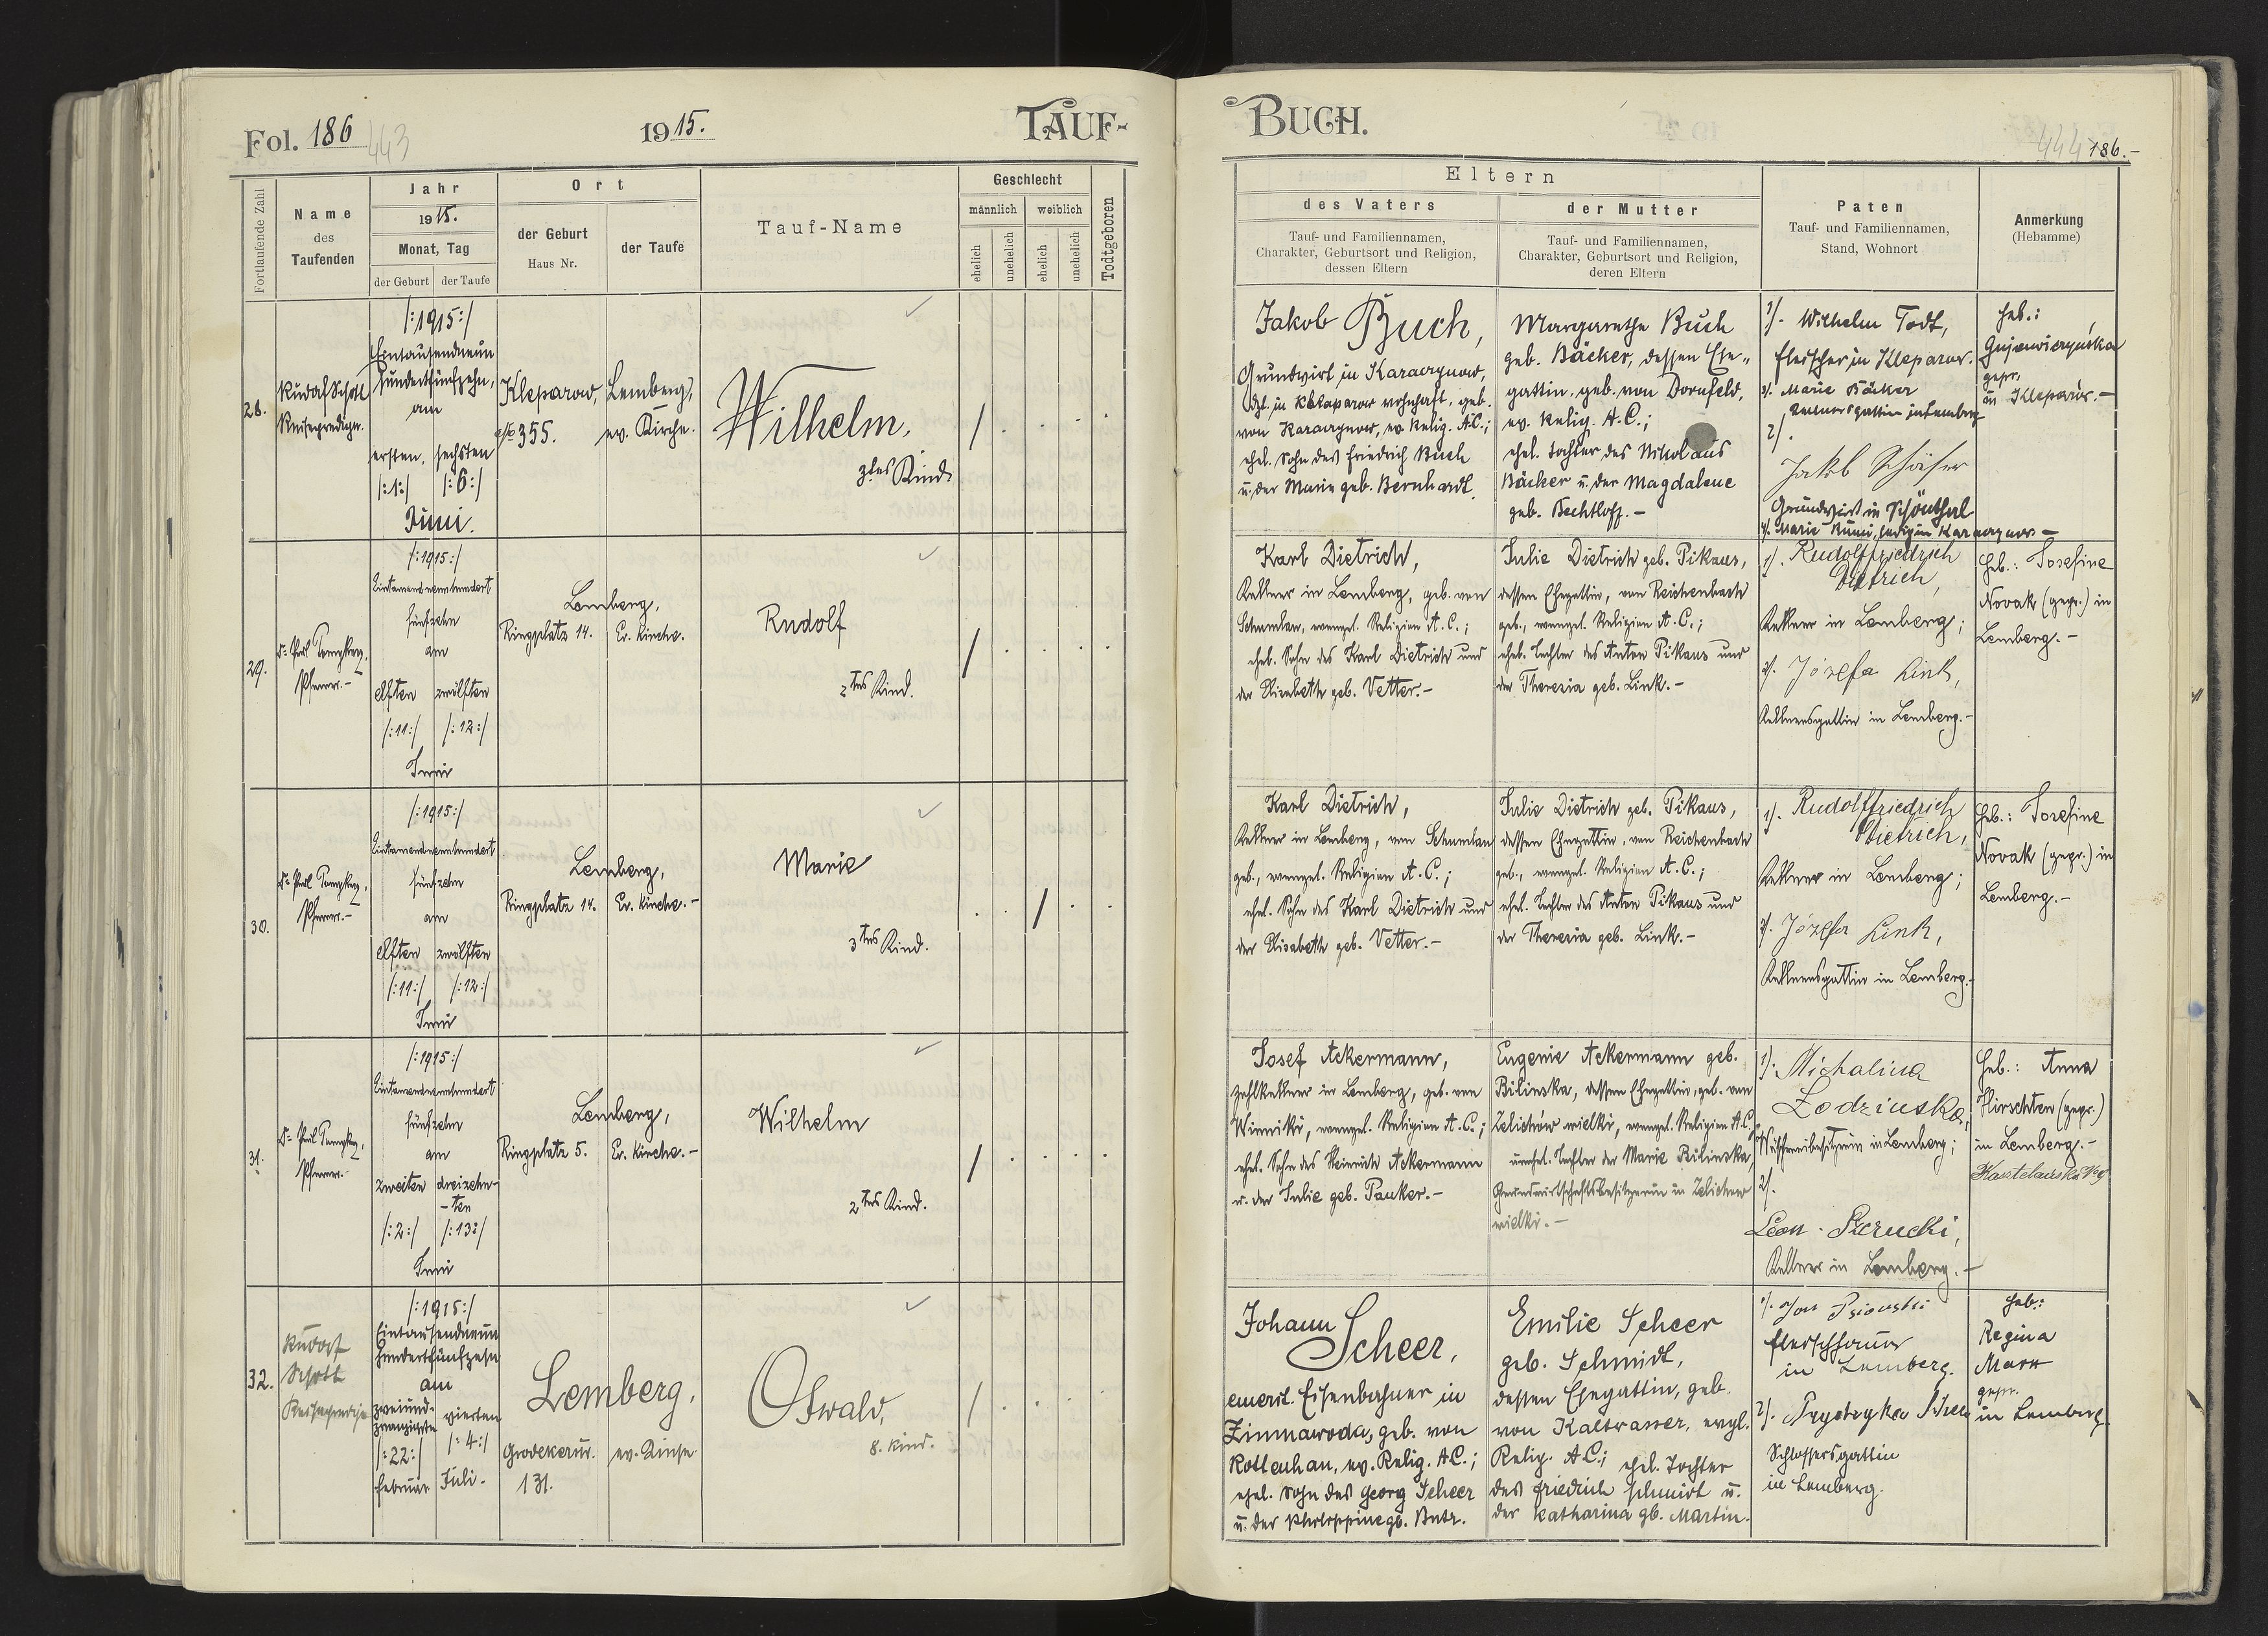 Fol. 186 443
1915.
TAUF-
Fortlaufende Zahl
Name
des
Taufenden
Jahr
1915.
Monat, Tag
der Geburt
der Taufe
Ort
der Geburt
Haus Nr.
der Taufe
Tauf-Name
Geschlecht
männlich
weiblich
ehelich
unehelich
ehelich
unehelich
Todtgeboren
28.
Rudolf Schott
Reiseprediger.
/:1915:/
Eintausendneun
hundertfünfzehn,
am
ersten, sechsten
/:1:/ /:6:/
Juni.
Kleparow,
№ 355.
Lemberg,
ev. Kirche.
Wilhelm,
3tes Kind.
29.
Pfarrer.-
/:1915:/
Eintausendneunhundert
fünfzehn
am
elften zwölften
/:11:/ /:12:/
Juni
Lemberg,
Ringplatz 14. Ev. Kirche.
Rudolf
2tes Kind.
30.
Pfarrer.-
/:1915:/
Eintausendneunhundert
fünfzehn
am
elften zwölften
/:11:/ /:12:/
Juni
Lemberg,
Ringplatz 14. Ev. Kirche.-
Marie
3tes Kind.
31.
Pfarrer.-
/:1915:/
Eintausendneunhundert
fünfzehn
am
zweiten dreizehn-
-ten
/:2:/ /:13:/
Juni
Lemberg,
Ringplatz 5. Ev. Kirche.-
Wilhelm
2tes Kind.
32.
Rudolf
Schott
Reiseprediger
/:1915:/
Eintausendneun
hundertfünfzehn
am
zweiund-
zwanzigsten vierten
/:22:/ /:4:/
Februar Juli.
Lemberg,
Grodekerstr. ev. Kirche
131.
Oswald,
8. Kind.
BUCH.
444 186.-
Eltern
des Vaters
Tauf- und Familiennamen,
Charakter, Geburtsort und Religion,
dessen Eltern
der Mutter
Tauf- und Familiennamen,
Charakter, Geburtsort und Religion,
deren Eltern
Paten
Tauf- und Familiennamen,
Stand, Wohnort
Anmerkung
(Hebamme)
Jakob Buch,
Grundwirt in Karaczynow,
dzt. in Kleparow wohnhaft, geb.
von Karaczynow, ev. Relig. A.C.;
ehel. Sohn des Friedrich Buch
u. der Marie geb. Bernhardt.
Margarethe Buch
geb. Bäcker, dessen Ehe-
gattin, geb. von Dornfeld,
ev. Relig. A.C.;
ehel. Tochter des Nikolaus
Bäcker u. der Magdalene
geb. Bechtloff.-
1/. Wilhelm Todt,
Fleischer in Kleparow.
3/. Marie Bäcker
Kellnersgattin in Lemberg
2/.
Jakob Schäfer
Grundwirt in Schönthal
4/. Marie ledig in Karaczynow.-
Heb.:
gepr.
in Kleparów.-
Karl Dietrich,
Kellner in Lemberg, geb. von
Schumlau, evangel. Religion A.C.;
ehel. Sohn des Karl Dietrich und
der Elisabeth geb. Vetter.-
Julie Dietrich geb. Pikaus,
dessen Ehegattin, von Reichenbach
geb., evangel. Religion A.C.;
ehel. Tochter des Anton Pikaus und
der Theresia geb. Link.-
1/. Rudolf Friedrich
Dietrich,
Kellner in Lemberg;
2/. Józefa Link,
Kellnersgattin in Lemberg.-
Heb.: Josefine
Novak (gepr.) in
Lemberg.-
Karl Dietrich,
Kellner in Lemberg, von Schumlau
geb., evangel. Religion A.C.;
ehel. Sohn des Karl Dietrich und
der Elisabeth geb. Vetter.-
Julie Dietrich geb. Pikaus,
dessen Ehegattin, von Reichenbach
geb., evangel. Religion A.C.;
ehel. Tochter des Anton Pikaus und
der Theresia geb. Link.-
1/. Rudolf Friedrich
Dietrich,
Kellner in Lemberg;
2/. Józefa Link,
Kellnersgattin in Lemberg.-
Heb.: Josefine
Novak (gepr.) in
Lemberg.-
Josef Ackermann,
Zahlkellner in Lemberg, geb. von
Winniki, evangel. Religion A.C.;
ehel. Sohn des Heinrich Ackermann
u. der Julie geb. Pauker.-
Eugenie Ackermann geb.
Bilinska, dessen Ehegattin, geb. von
Zelichów wielki, evangel. Religion A.C.;
unehel. Tochter der Marie Bilinska,
Grundwirtschaftsbesitzerin in Zelichow
wielki.-
1/. Michalina
in Lemberg;
2/.
Leon
Kellner in Lemberg.-
Heb.: Anna
Hirschten (gepr.)
in Lemberg.-
Johann
Scheer,
emerit. Eisenbahner in
Zimnawoda, geb. von
Rottenhan, ev. Relig. A.C.;
ehel. Sohn des Georg Scheer
u. der Philippine gb. Butz.
Emilie Scheer
geb. Schmidt,
dessen Ehegattin, geb.
von Kaltwasser, evgl.
Relig. A.C.; ehel. Tochter
des Friedrich Schmidt u.
der Katharina gb. Martin.
1/. Jan
Fleischhauer
in Lemberg.
2/.
Schlossersgattin
in Lemberg.
Heb.:
Regina
Mark
gepr.
in Lemberg.